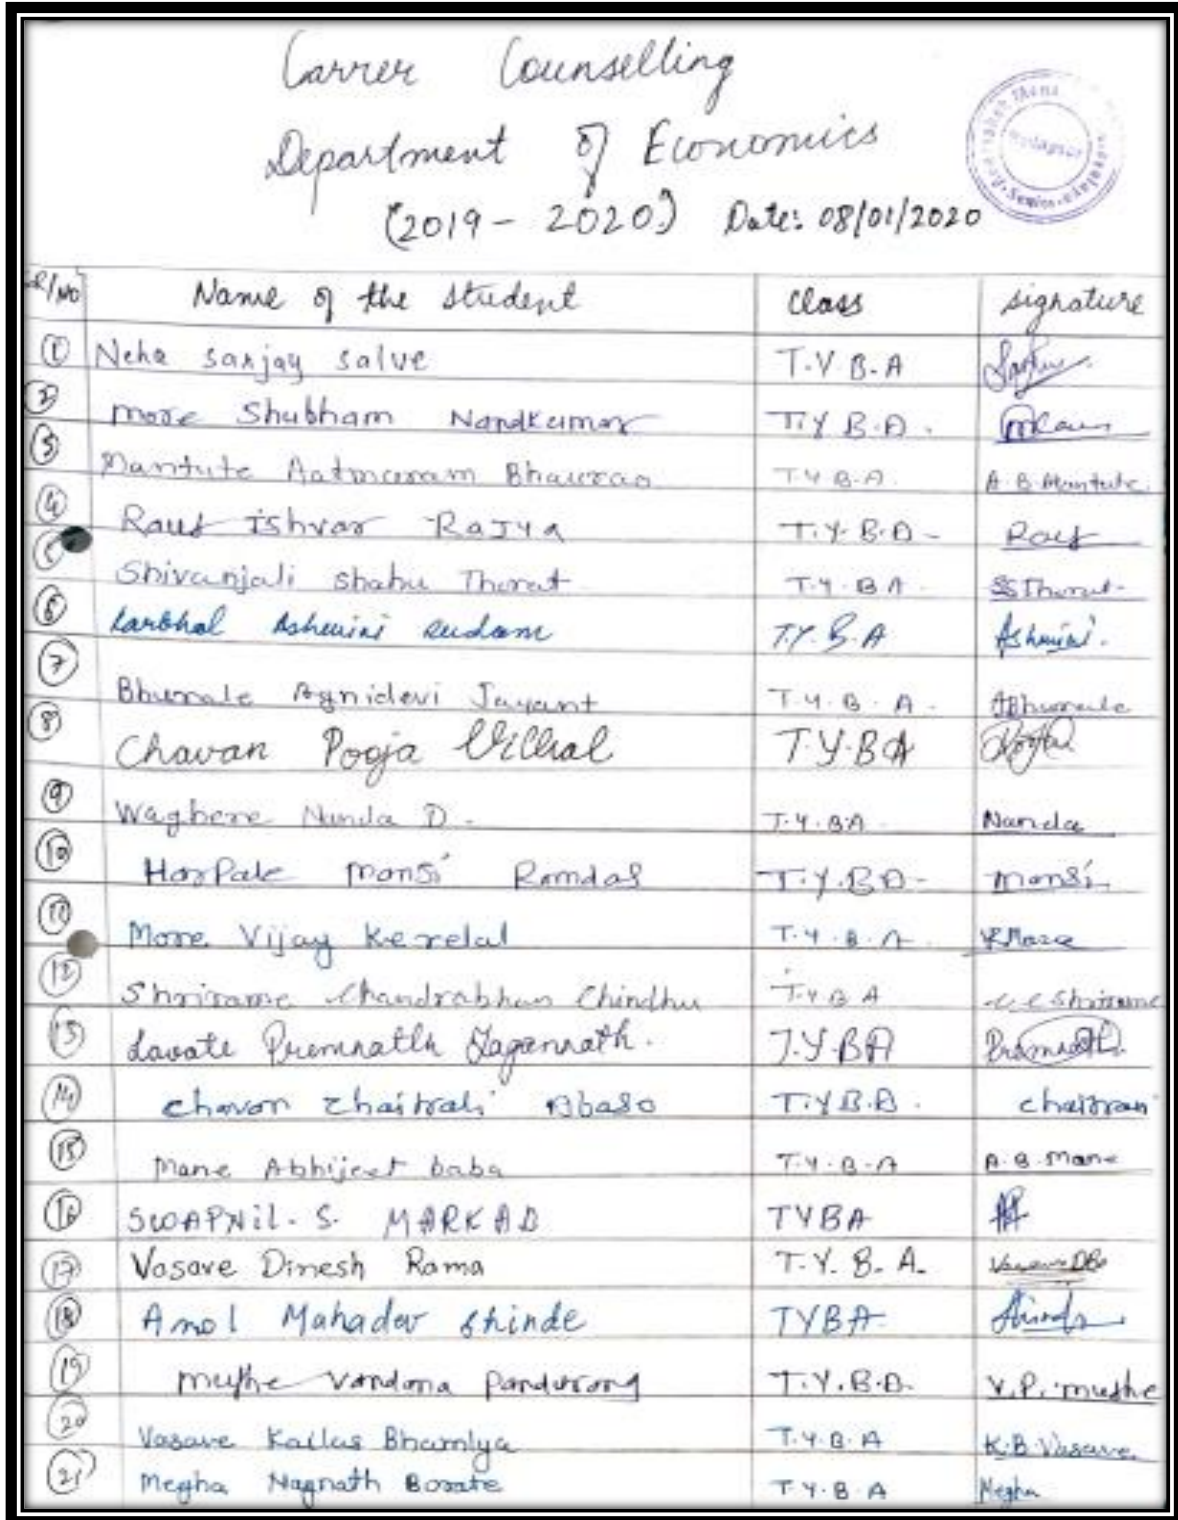 Carrer Counselling
Department of Economics
(2019 - 2020) Date: 08/01/2020
Sr/No Name of the Student Class signature
1 Neha sanjay salve T.Y.B.A
2 more Shubham Nandkumar T.Y B.A.
3 Mantute Aatmaram Bhaurao T.Y B.A. A.B.Mantute.
4 Raut Ishvar RaJya T.Y.B.A- Raut
5 Shivanjali shahu Thorat T.Y.BA. SSThorat.
6 Ashwini sudam T.Y.B.A Ashwini.
7 Bhurale Agnidevi Jayant T.Y.B.A. ABhurale
8 Chavan Pooja Vitthal T.Y.BA Pooja
9 Waghere Nanda D. T.Y.BA. Nanda
10 HarPale mansi Ramdas T.Y.BA- mansi
11 More Vijay Kerelal T.Y.B.A. V.K.More
12 Shrirame Chandrabhan Chindhu T.Y B A c c Shrirame
13 Lavate Premnath Jagannath. T.Y.BA Premnath.
14 chavan Chaitrali Abaso T.Y.B.A. chaitrali
15 Mane Abhijeet baba T.Y.B.A A.B.Mane
16 SWAPNil. S. MARKAD TYBA
17 Vasave Dinesh Rama T.Y.B.A. Vasave DR
18 Amol Mahadev Shinde TYBA Shinde
19 muthe Vandana Pandurang T.Y.B.A. V.P. muthe
20 Vasave Kailas Bhamlya T.Y.B.A K.B Vasave
21 Megha Nagnath Borate T.Y.B.A Megha